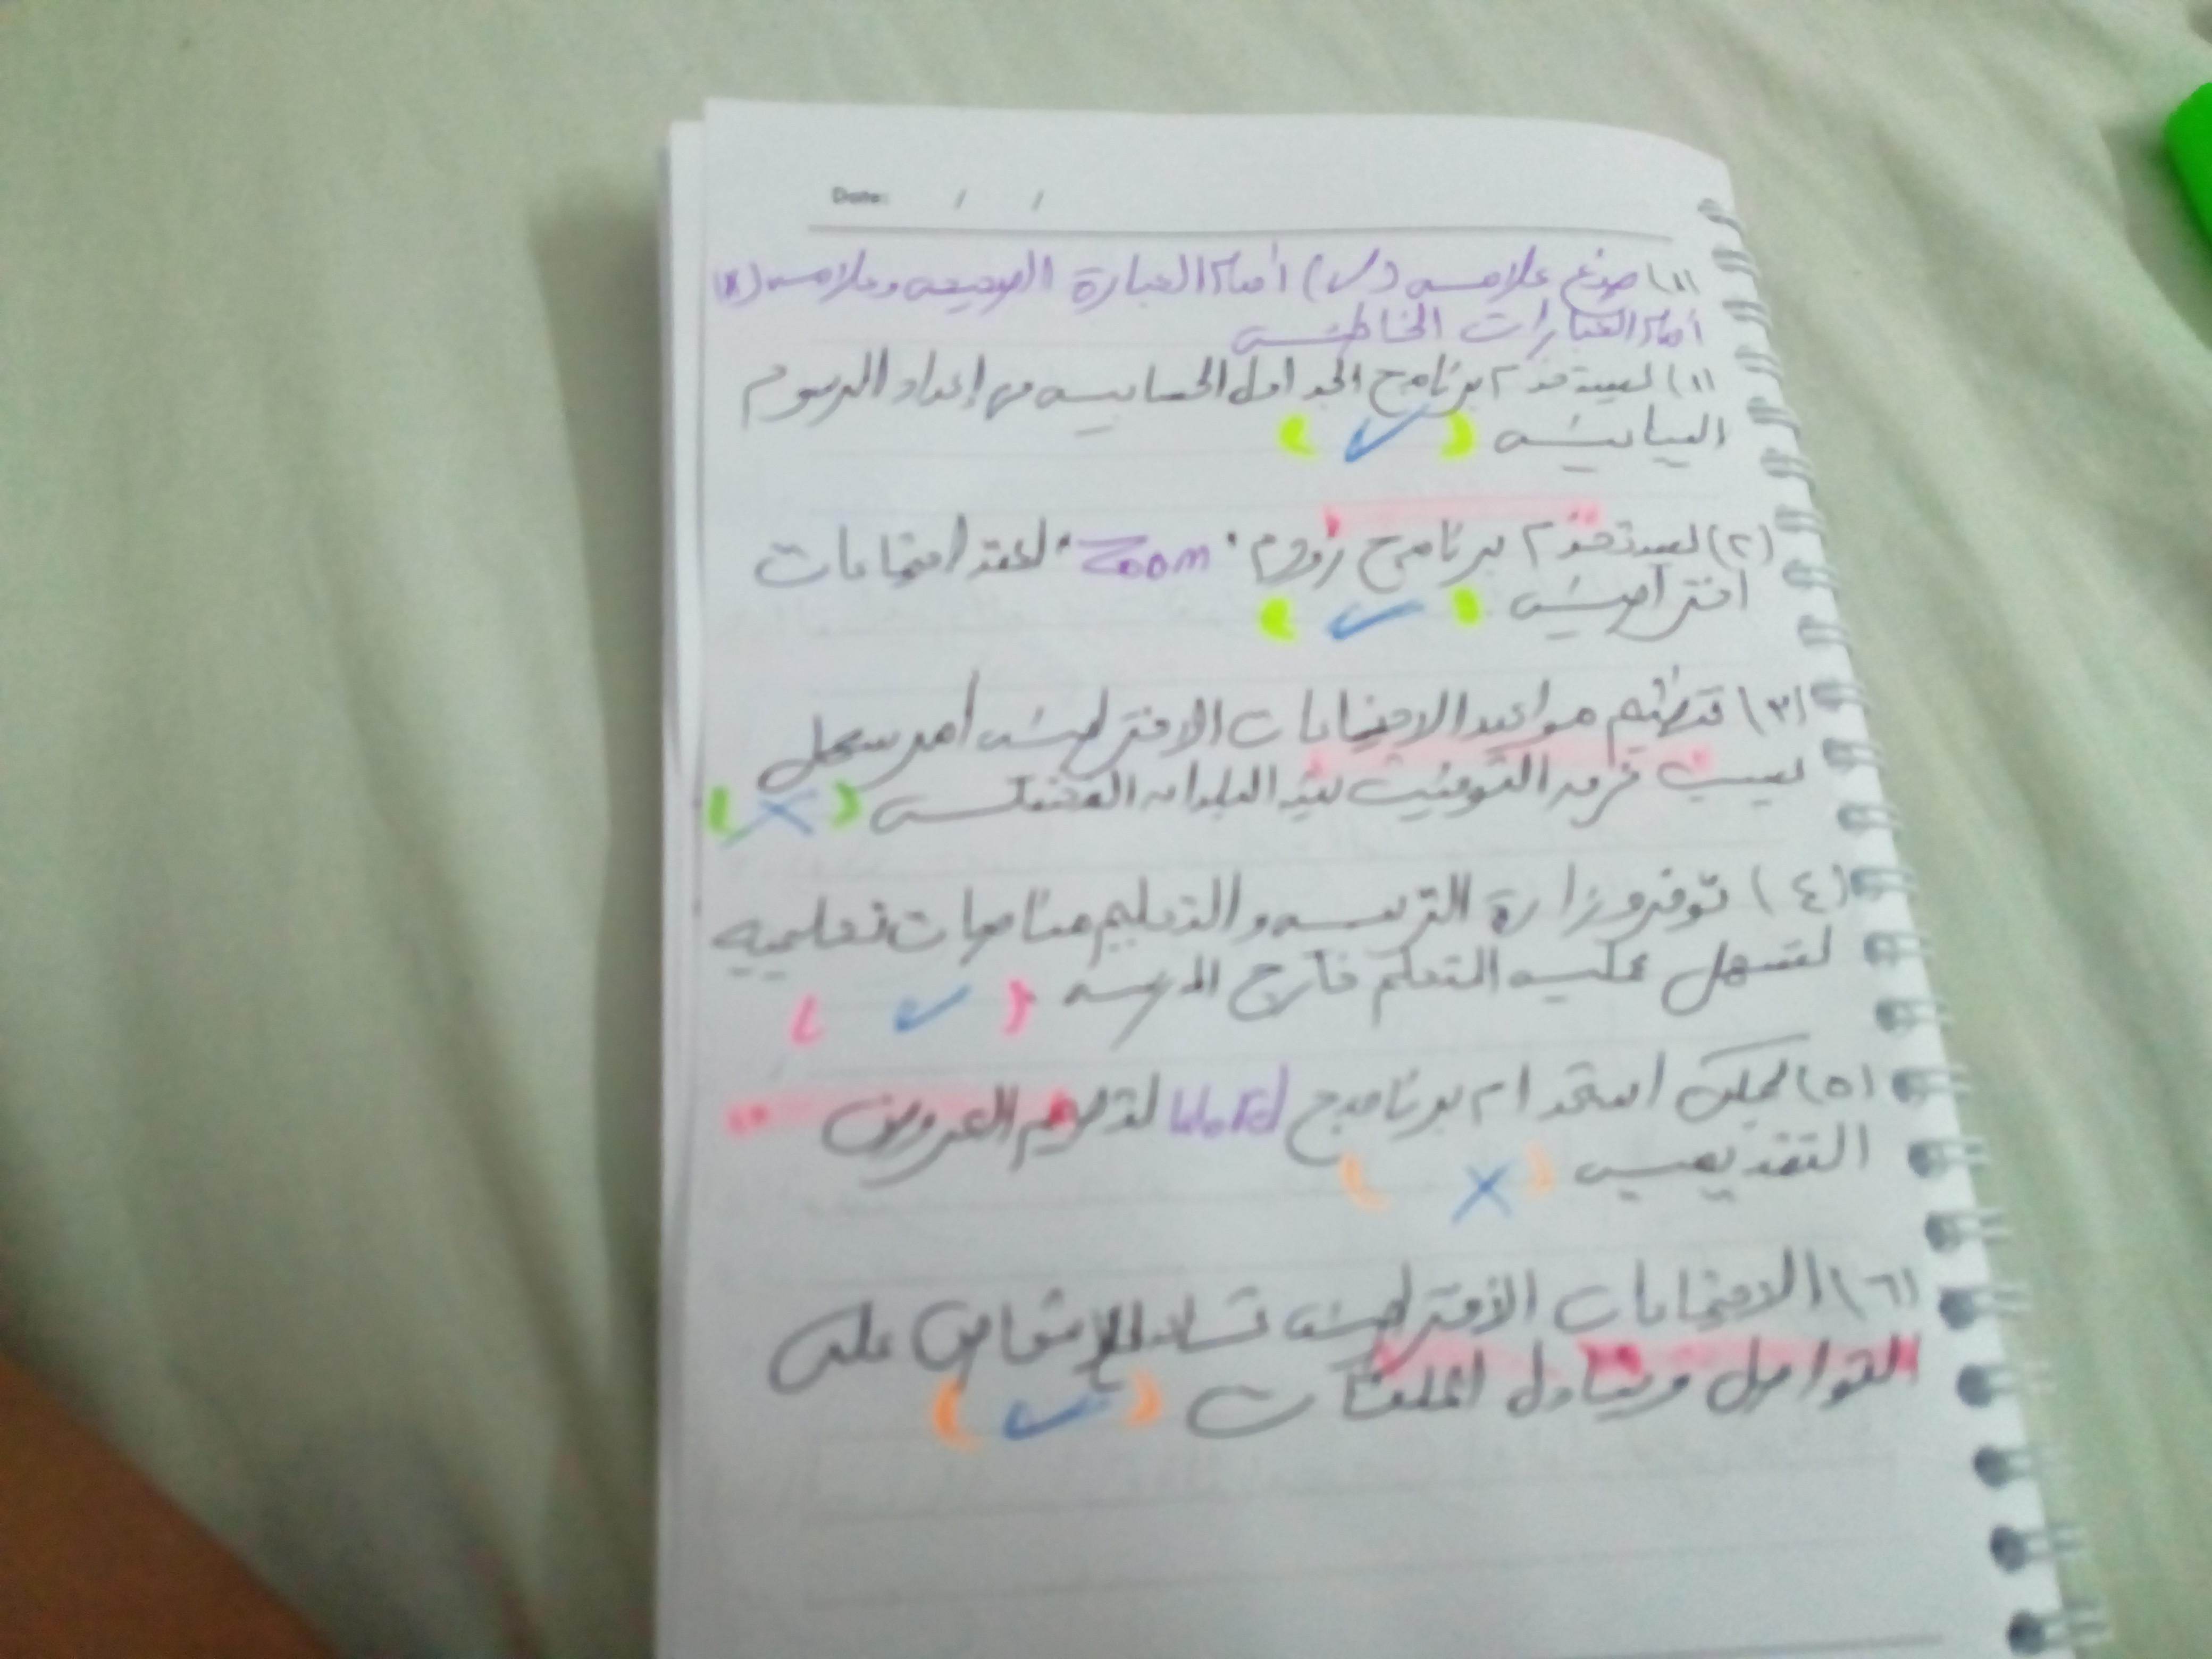 Date: / /
(١) ضع علامه (✓) أمام العبارة الصحيحه وعلامه (x)
أمام العبارات الخاطئه
(١) يستخدم برنامج الجداول الحسابيه في إعداد الرسوم
البيانيه (✓)
(٢) يستخدم برنامج زووم "Zoom" لعقد اجتماعات
افتراضيه (✓)
(٣) تنظيم مواعيد الاجتماعات الافتراضيه أمر سهل
بسبب فرق التوقيت بين البلدان المختلفه (x)
(٤) توفر وزارة التربيه والتعليم منصات تعليميه
لتسهل عمليه التعلم خارج المدرسه (✓)
(٥) يمكن استخدام برنامج Word لتصميم العروض
التقديميه (x)
(٦) الاجتماعات الافتراضيه تساعد الاشخاص على
التواصل وتبادل الملفات (✓)